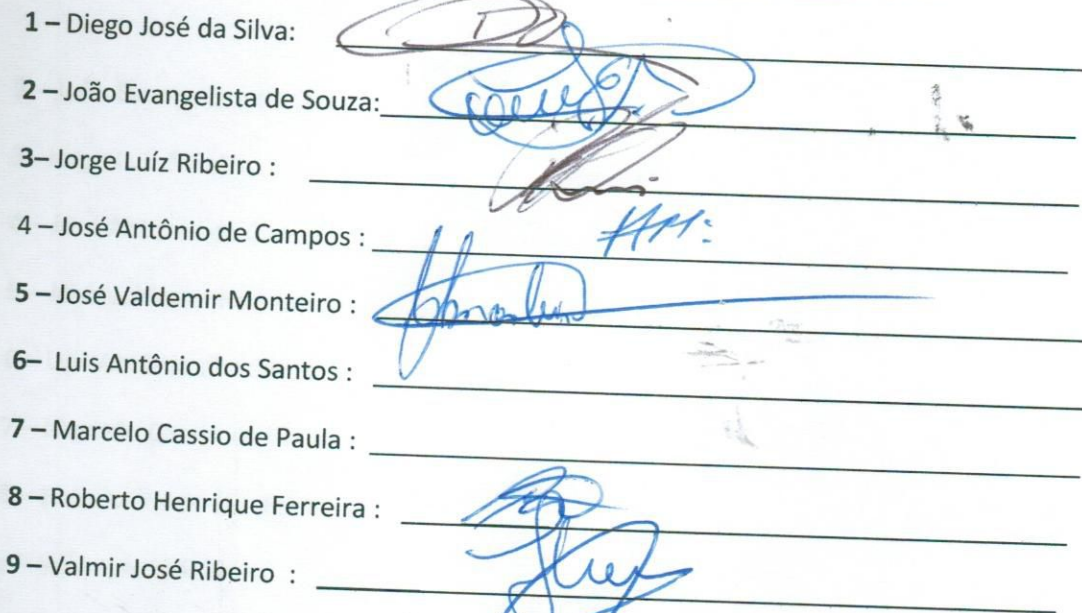 1 – Diego José da Silva:
2 – João Evangelista de Souza:
3– Jorge Luíz Ribeiro :
4 – José Antônio de Campos :
5 – José Valdemir Monteiro :
6– Luis Antônio dos Santos :
7 – Marcelo Cassio de Paula :
8 – Roberto Henrique Ferreira :
9 – Valmir José Ribeiro :